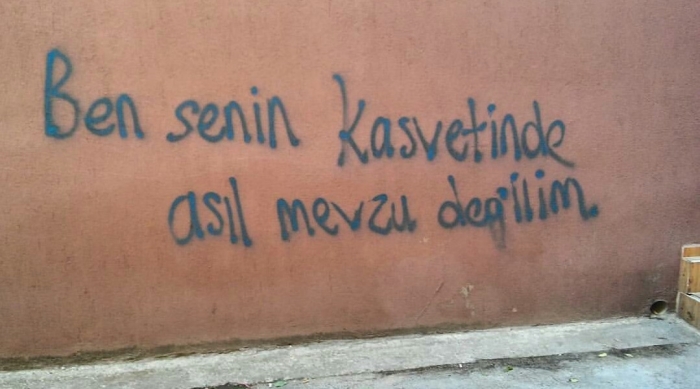 Ben senin kasvetinde
asıl mevzu değilim.